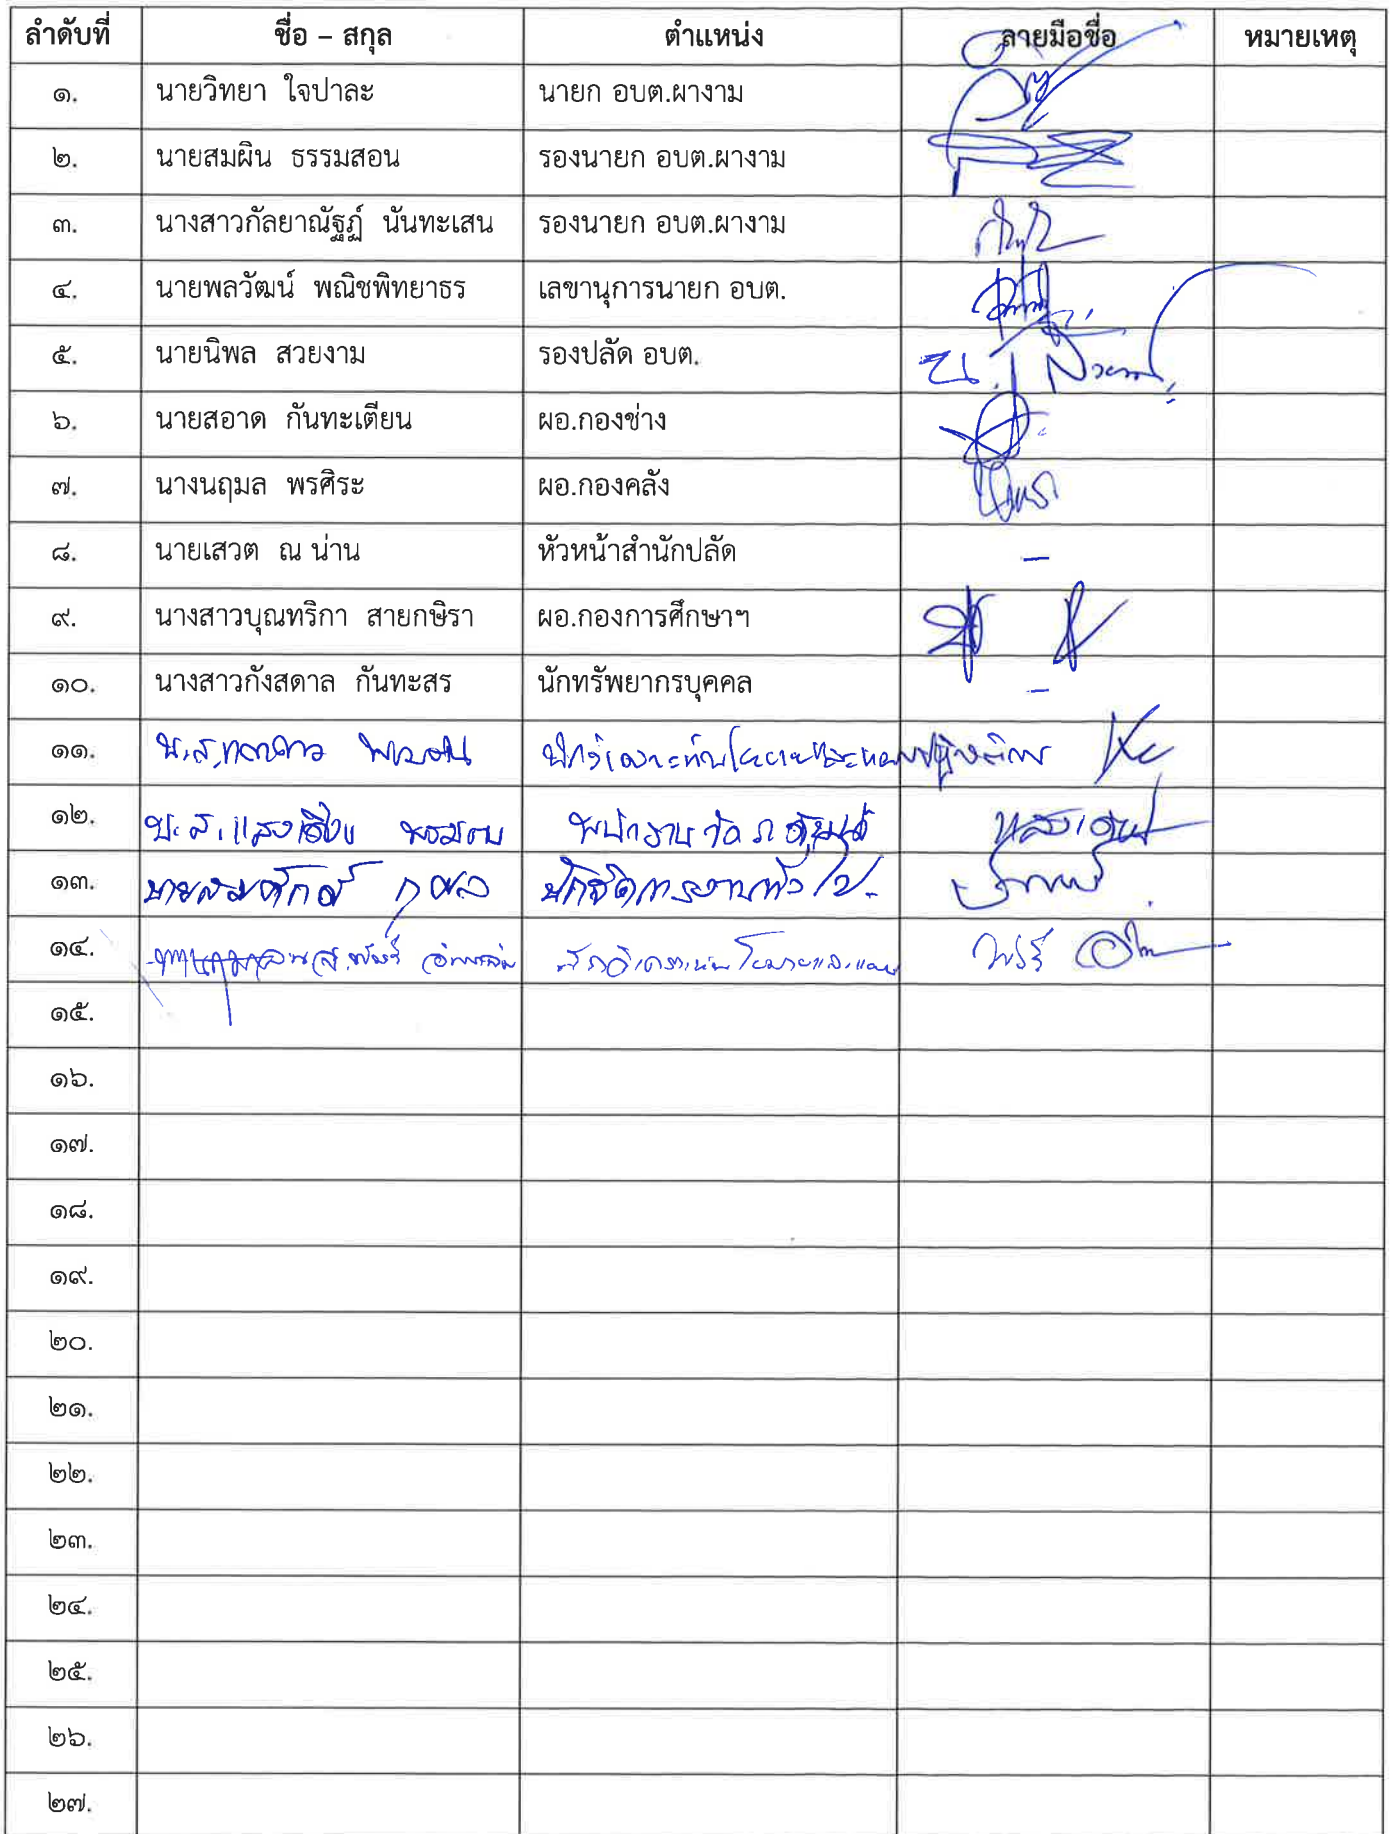 ลำดับที่ ชื่อ – สกุล ตำแหน่ง ลายมือชื่อ หมายเหตุ
๑. นายวิทยา ใจปาละ นายก อบต.ผางาม
๒. นายสมผิน ธรรมสอน รองนายก อบต.ผางาม
๓. นางสาวกัลยาณัฐฏ์ นันทะเสน รองนายก อบต.ผางาม
๔. นายพลวัฒน์ พณิชพิทยาธร เลขานุการนายก อบต.
๕. นายนิพล สวยงาม รองปลัด อบต.
๖. นายสอาด กันทะเตียน ผอ.กองช่าง
๗. นางนฤมล พรศิระ ผอ.กองคลัง
๘. นายเสวต ณ น่าน หัวหน้าสำนักปลัด –
๙. นางสาวบุณทริกา สายกษิรา ผอ.กองการศึกษาฯ
๑๐. นางสาวกังสดาล กันทะสร นักทรัพยากรบุคคล –
๑๑. น.ส. นักวิเคราะห์นโยบายและแผนปฏิบัติการ
๑๒. น.ส.
๑๓. นายสมศักดิ์ นักจัดการงานทั่วไป
๑๔. นักวิเคราะห์นโยบายและแผน
๑๕.
๑๖.
๑๗.
๑๘.
๑๙.
๒๐.
๒๑.
๒๒.
๒๓.
๒๔.
๒๕.
๒๖.
๒๗.